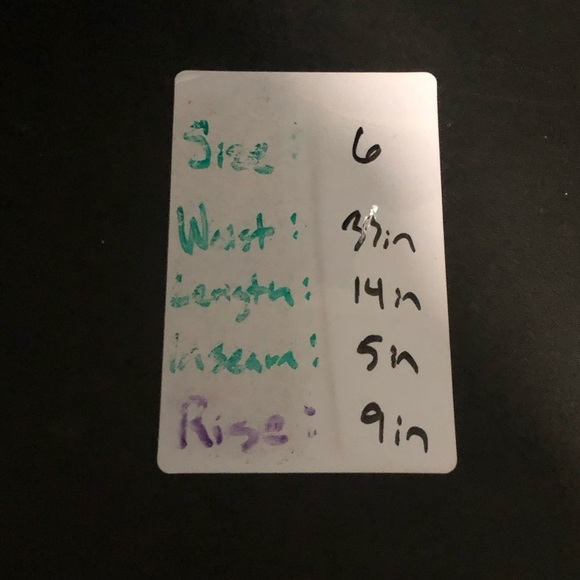 Size: 6
Waist:
Length: 14in
Inseam: 5in
Rise: 9in